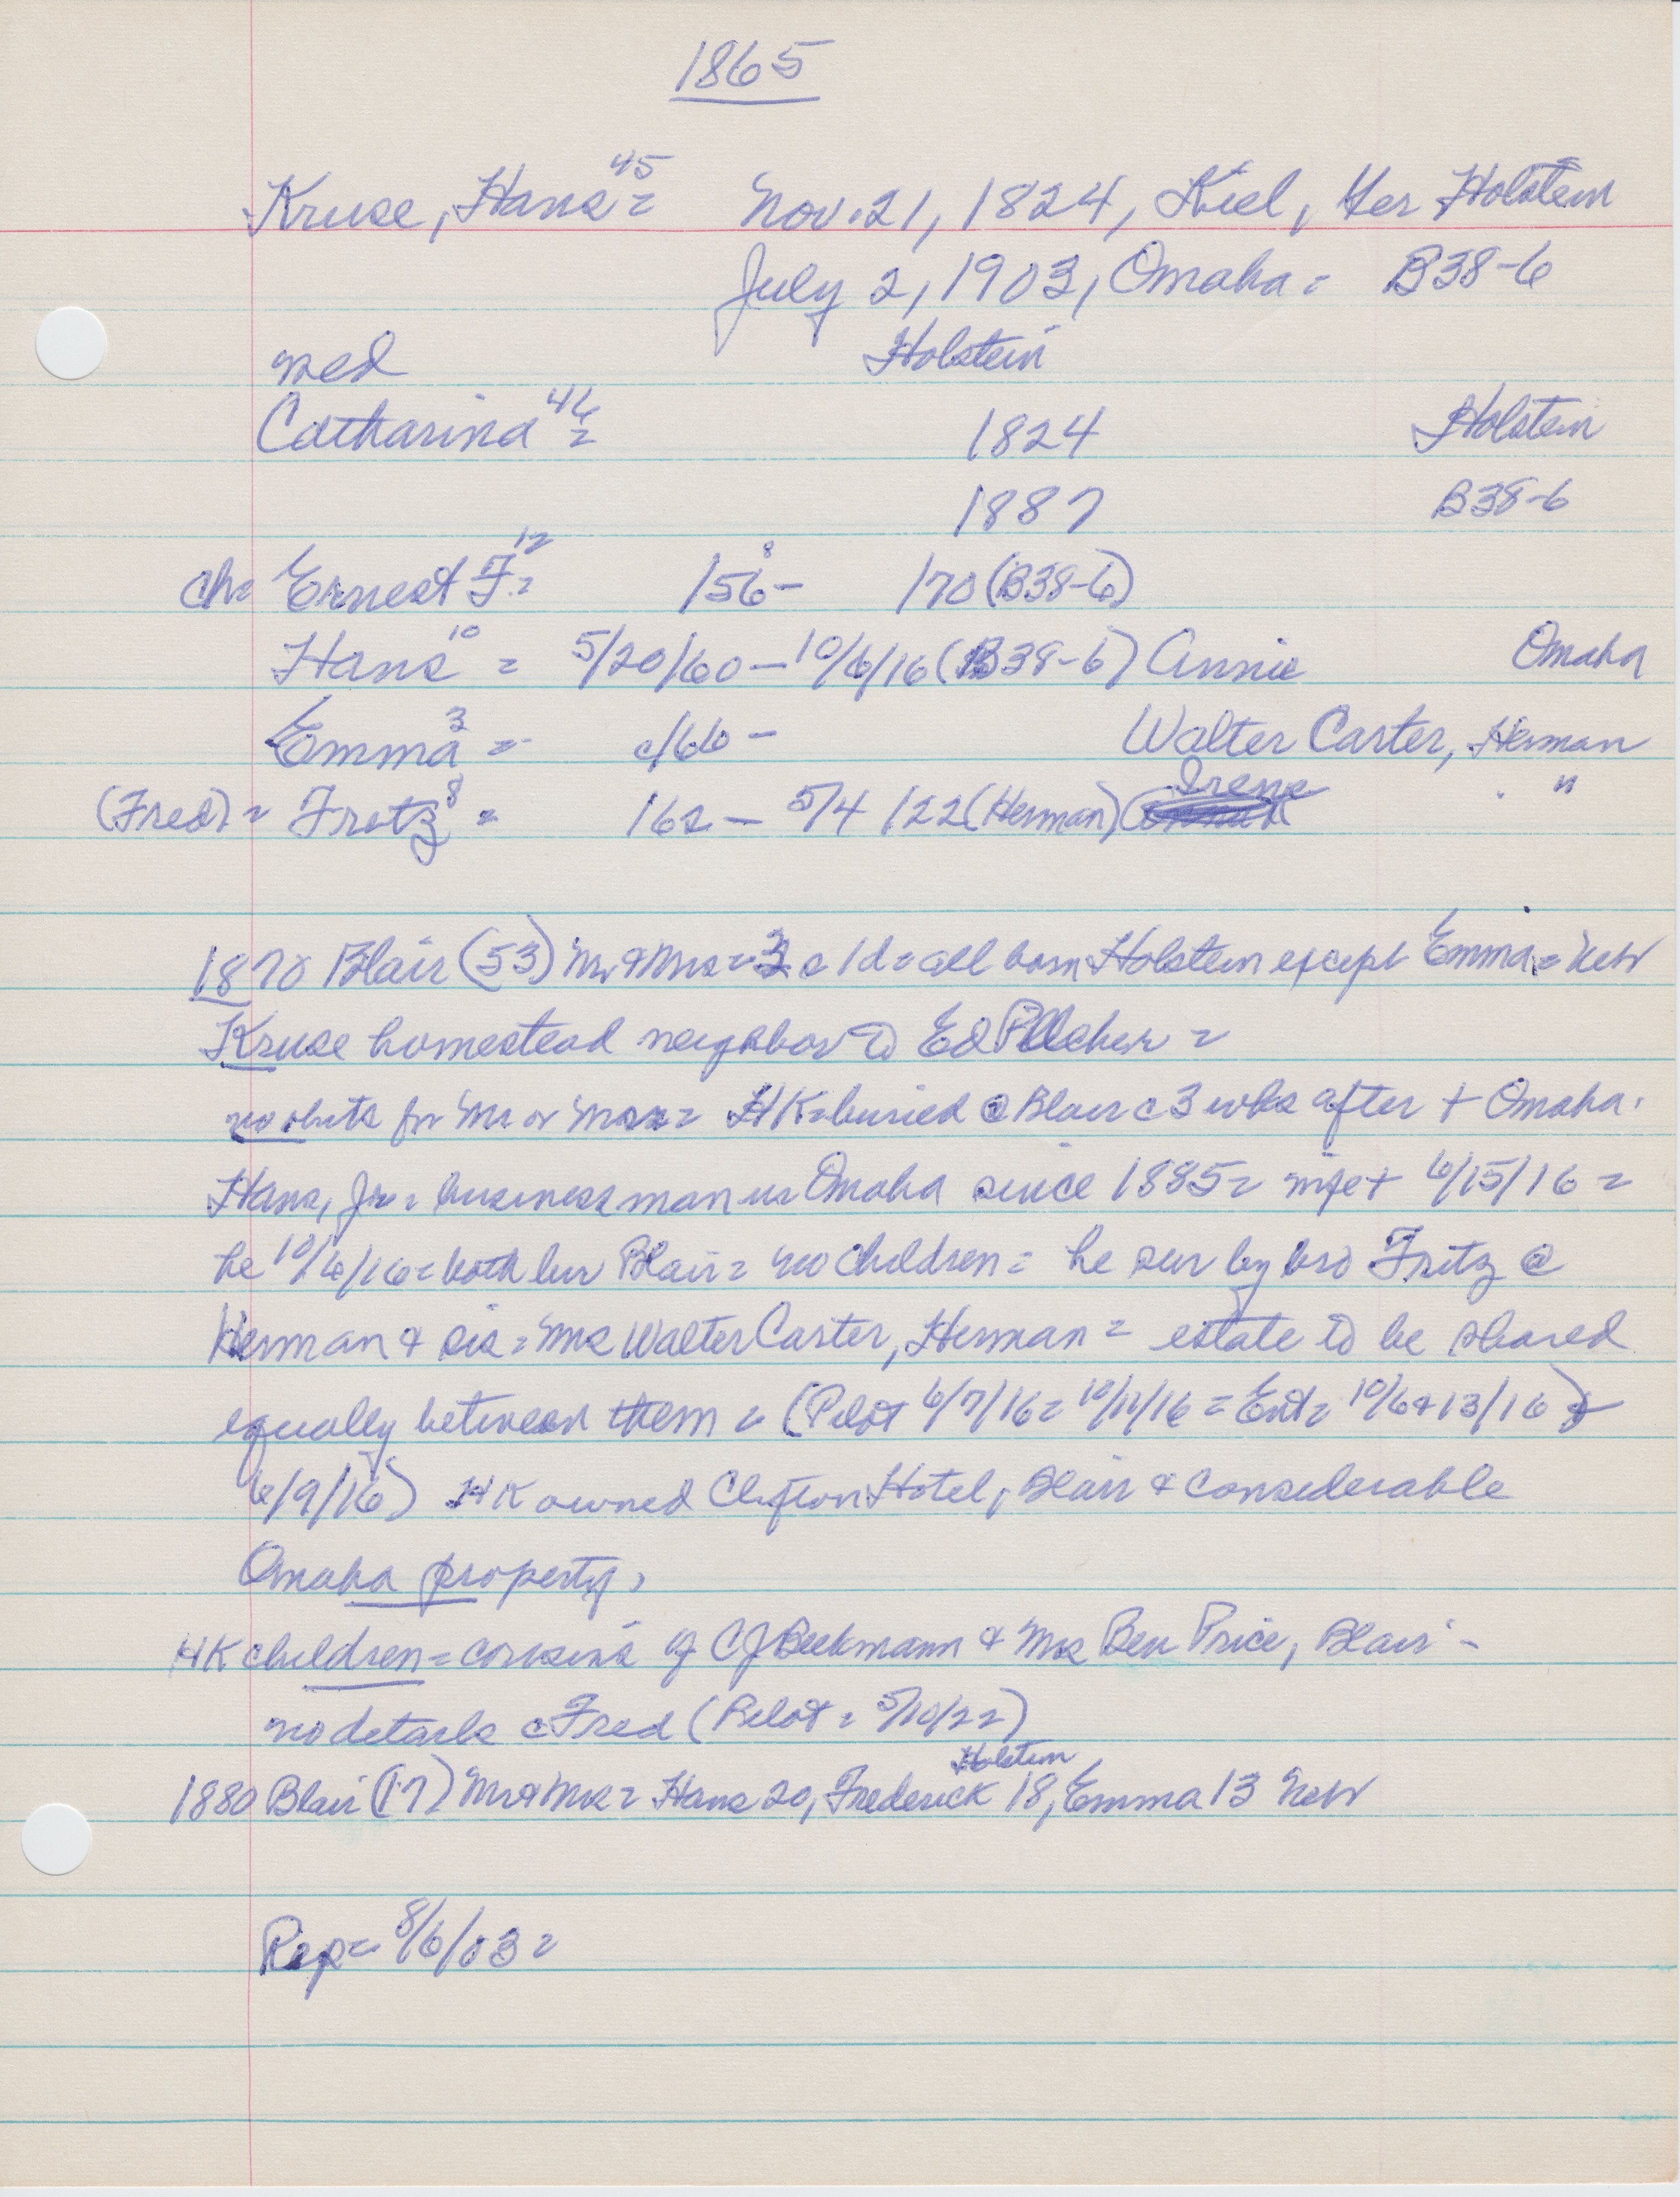 1865
Kruse, Hans 45 = Nov. 21, 1824, Kiel, Ger Holstein
July 2, 1903, Omaha = B38-6
med Holstein
Catharina 46 = 1824 Holstein
1887 B38-6
ch= Ernest F. 12 = /56- 8 /70 (B38-6)
Hans 10 = 5/20/60 - 10/6/16 (B38-6) Annie Omaha
Emma 3 = c/66 - Walter Carter, Herman
(Fred) = Fretz 8 = /62 - 5/4/22 (Herman) Irene "
1870 Blair (53) Mr & Mrs = 3 s 1 d = all born Holstein except Emma = Neb
Kruse homestead neighbor to Ed Pilcher =
no obits for Mr or Mrs = HK = buried @ Blair c 3 wks after + Omaha.
Hans, Jr = businessman in Omaha since 1885 = wife + 6/15/16 =
he 10/6/16 = both bur Blair = no children = he sur by bro Fritz @
Herman & sis = Mrs Walter Carter, Herman = estate to be shared
equally between them = (Pilot 6/7/16 = 10/11/16 = Ent = 10/6 & 13/16)
6/9/16) HK owned Clifton Hotel, Blair & considerable
Omaha property,
HK children = cousins of CJ Beekmann & Mrs Ben Price, Blair -
no details c Fred (Pilot = 5/10/22)
Holstein
1880 Blair (17) Mr & Mrs = Hans 20, Frederick 18, Emma 13 Neb
Rep = 8/6/03 =